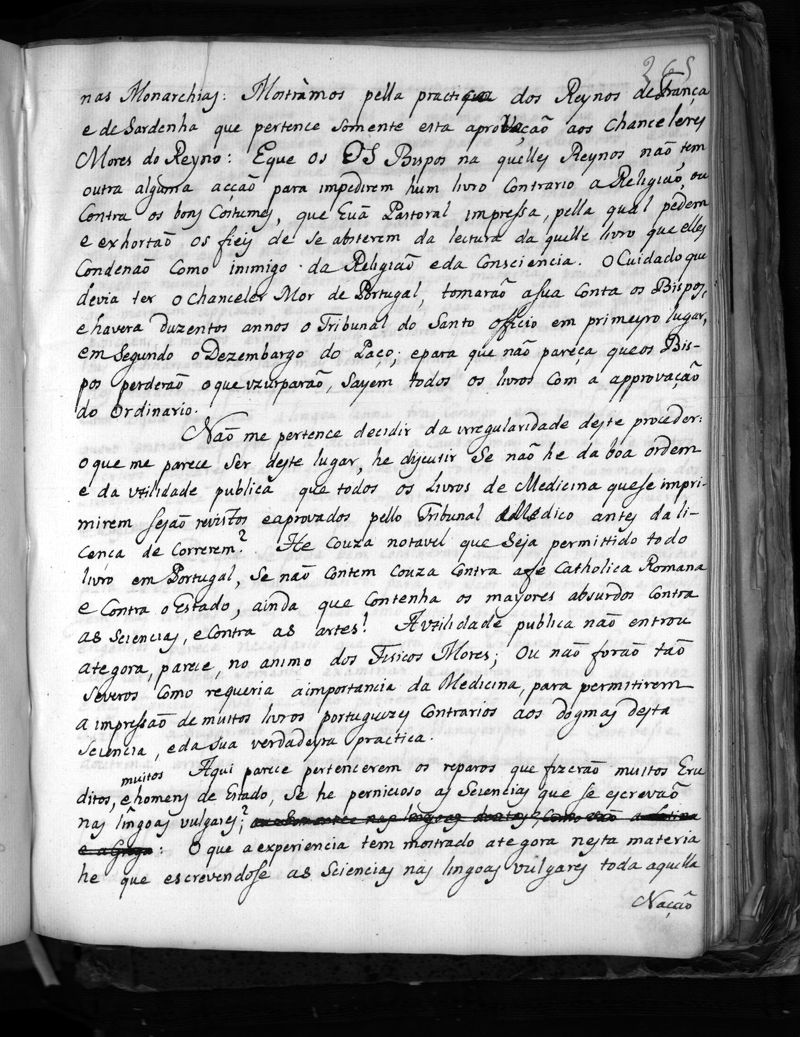 265
nas Monarchias: Mostràmos pella practica dos Reynos de França
e de Sardenha que pertence somente esta aprovação aos Chanceleres
Mores do Reyno: Eque os SS Bispos na quelles Reynos não tem
outra algũma acção para impedirem hum livro Contrario a Religião, ou
Contra os bons Costumes, que Euã Pastoral impressa, pella qual pedem
e exhortão os fieis de se absterem da lectura da quelle livro que elles
Condenão Como inimigo da Religião eda Consciencia. O Cuidado que
devia ter o Chanceler Mor de Portugal, tomarão asua Conta os Bispos,
e havera duzentos annos o Tribunal do Santo officio em primeyro lugar,
em Segundo o Dezembargo do Paço; epara que não pareça queos Bis-
pos perderão oque vzurparão, Sayem todos os livros Com a approvação
do Ordinario.
Não me pertence decidir da irregularidade deste proceder:
oque me parece Ser deste lugar, he discutir Se não he da boa ordem
e da vtilidade publica que todos os Livros de Medicina quese impri-
mirem sejão revistos eaprovados pello Tribunal Medico antes da li-
cença de Correrem? He Couza notavel que Seja permittido todo
livro em Portugal, Se não Contem Couza Contra afé Catholica Romana
e Contra o Estado, ainda que Contenha os mayores absurdos Contra
as Sciencias, e Contra as artes! A vtilidade publica não entrou
ategora, parece, no animo dos Fisicos Mores; Ou não forão tão
Severos Como requeria aimportancia da Medicina, para permitirem
a impressão de muitos livros portuguezes Contrarios aos dogmas desta
Sciencia, eda sua verdadeyra practica.
Aqui parece pertencerem os reparos que fizerão muitos Eru
muitos
ditos, e homens de Estado, Se he pernicioso as Sciencias que se escrevão
nas lingoas vulgares;? ou Somente nas lingoas doutas, Como são a Latina
e a Grega: O que a experiencia tem mostrado ategora nesta materia
he que escrevendose as Sciencias nas lingoas vulgares toda aquella
Nação